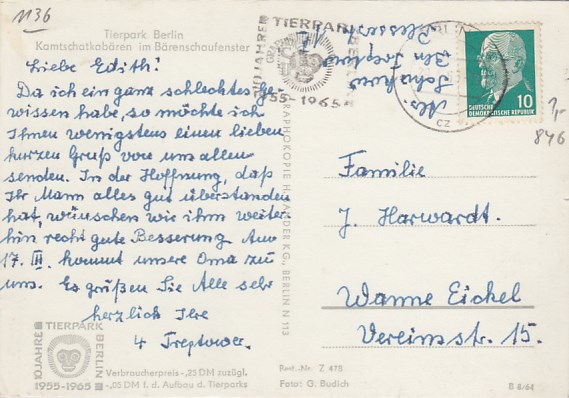 1136
Tierpark Berlin
Kamtschatkabären im Bärenschaufenster
Liebe Edith!
Da ich ein ganz schlechtes Ge-
wissen habe, so möchte ich
Ihnen wenigstens einen lieben
kurzen Gruß von uns allen
senden. In der Hoffnung, daß
Ihr Mann alles gut überstanden
hat, wünschen wir ihm weiter
hin recht gute Besserung. Am
17. III. kommt unsere Oma zu
uns. Es grüßen Sie Alle sehr
herzlich Ihre
4 Treptower.
10 JAHRE TIERPARK BERLIN
1955-1965
Verbraucherpreis -,25 DM zuzügl.
-,05 DM f. d. Aufbau d. Tierparks
10 JAHRE TIERPARK BERLIN
1955-1965
BERLIN
cz
DEUTSCHE
DEMOKRATISCHE REPUBLIK
10
846
Familie
J. Harwardt.
Wanne Eickel
Vereinsstr. 15.
Best.-Nr. Z 473
Foto: G. Budich
B 8/64